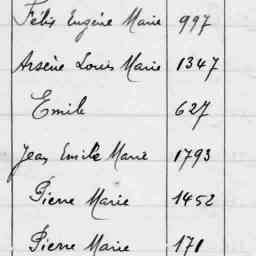 Félix Eugène Marie 997
Arsène Louis Marie 1347
Emile 627
Jean Emile Marie 1793
Pierre Marie 1452
Pierre Marie 171